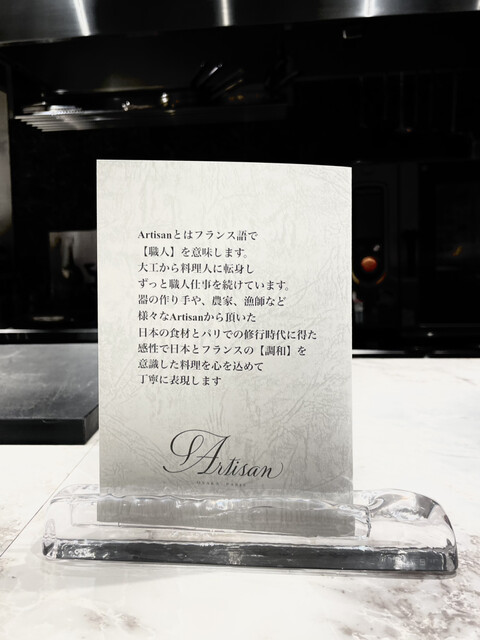 Artisanとはフランス語で
【職人】を意味します。
大工から料理人に転身し
ずっと職人仕事を続けています。
器の作り手や、農家、漁師など
様々なArtisanから頂いた
日本の食材とパリでの修行時代に得た
感性で日本とフランスの【調和】を
意識した料理を心を込めて
丁寧に表現します
Artisan